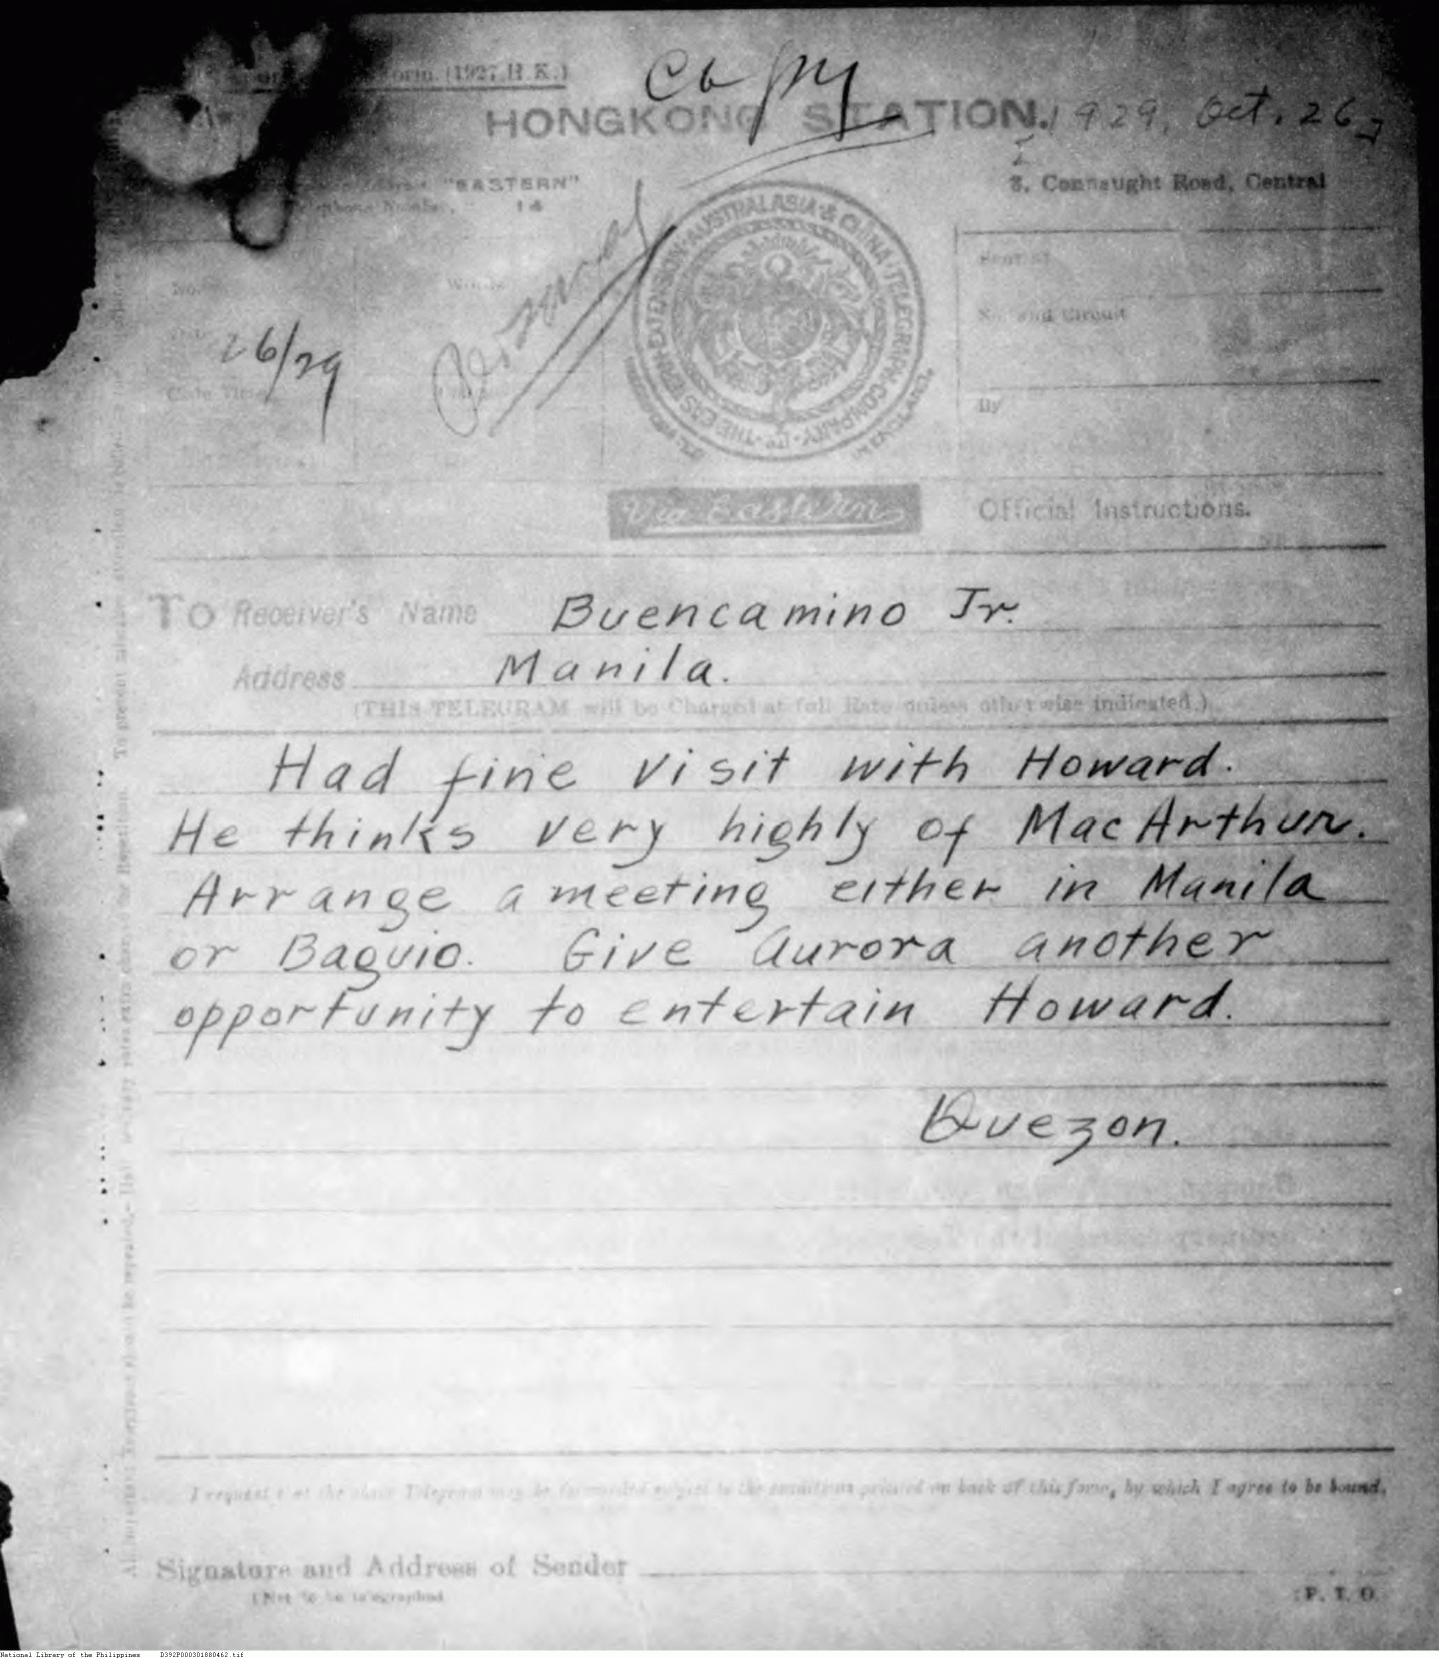 Form. (1927. H. K.)
Copy
HONGKONG STATION.
1929, Oct. 26,
"EASTERN"
14
3, Connaught Road, Central
Words
26/29
THE EASTERN EXTENSION AUSTRALASIA & CHINA TELEGRAPH COMPANY LTD
Sent at
No. and Circuit
By
Via Eastern
Official Instructions.
TO Receiver's Name Buencamino Jr.
Address Manila.
(THIS TELEGRAM will be Charged at full Rate unless otherwise indicated.)
Had fine visit with Howard.
He thinks very highly of MacArthur.
Arrange a meeting either in Manila
or Baguio. Give Aurora another
opportunity to entertain Howard.
Quezon.
I request that the above Telegram may be forwarded subject to the conditions printed on back of this form, by which I agree to be bound.
Signature and Address of Sender
(Not to be telegraphed)
P. T. O.
National Library of the Philippines D392P000301880462.tif